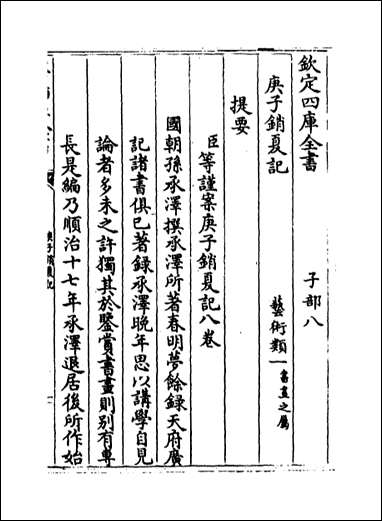 欽定四庫全書　子部八
庚子銷夏記　藝術類一書畫之屬
提要
臣等謹案庚子銷夏記八卷
國朝孫承澤撰承澤所著春明夢餘録天府廣
記諸書俱已著録承澤晚年思以講學自見
論者多未之許獨其於鑒賞書畫則别有專
長是編乃順治十七年承澤退居後所作始
庚子銷夏記